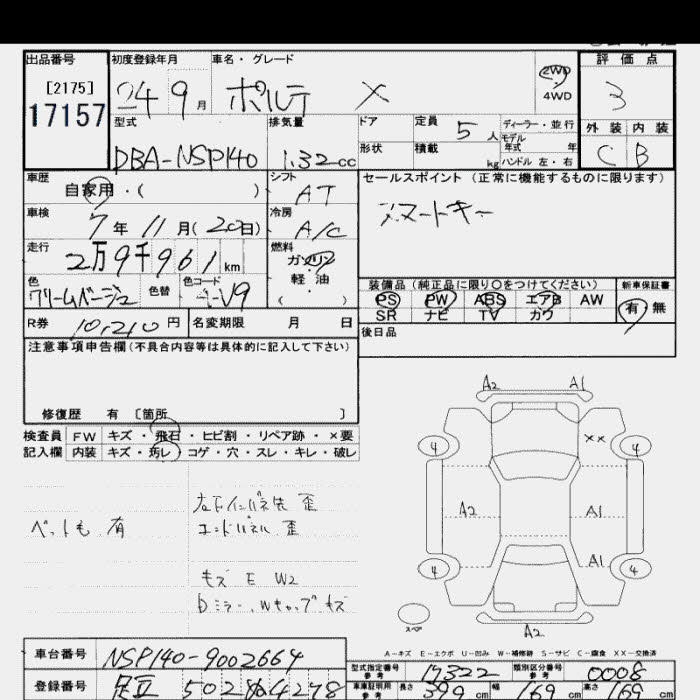 出品番号
[2175]
17157
初度登録年月
24 9 月
車名・グレード
ポルテ X
2WD
4WD
評価点
3
外装 内装
C B
型式
DBA-NSP140
排気量
1.32 cc
ドア
形状
定員 5 人
積載 kg
ディーラー・並行
モデル
年式 年
ハンドル 左・右
車歴
自家用・( )
シフト
AT
セールスポイント (正常に機能するものに限ります)
スマートキー
車検
7 年 11 月 (20日)
冷房
A/C
走行
2万9千961 km
燃料
ガソリン
軽油
( )
色
クリームベージュ
色替
色コード
V9
装備品 (純正品に限り○をつけてください)
PS PW ABS エアB AW
SR ナビ TV カワ
新車保証書
有 無
R券 10,210 円
名変期限 月 日
後日品
注意事項申告欄 (不具合内容等は具体的に記入して下さい)
修復歴 有 [箇所 ]
検査員
記入欄
FW キズ・飛石・ヒビ割・リペア跡・×要
内装 キズ・汚レ・コゲ・穴・スレ・キレ・破レ
ペットも 有
左下インパネ先 歪
エンドパネル 歪
キズ E W2
Dミラー、Wキャップキズ
A2 A1
4 XX 4
A2 A1
A1
4 4
スペア
A2
A-キズ E-エクボ U-凹み W-補修跡 S-サビ C-腐食 XX-交換済
車台番号 NSP140-9002664
登録番号 足立 502 4278
型式指定番号 参考 17322
類別区分番号 参考 0008
車車証明用 参考 長さ 399 cm 幅 169 cm 高さ 169 cm